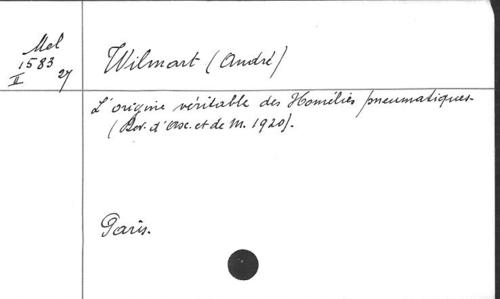 Mel
1583
II 27
Wilmart (André)
L'origine véritable des Homélies pneumatiques.
(Rev. d'Asc. et de M. 1920).
Paris.